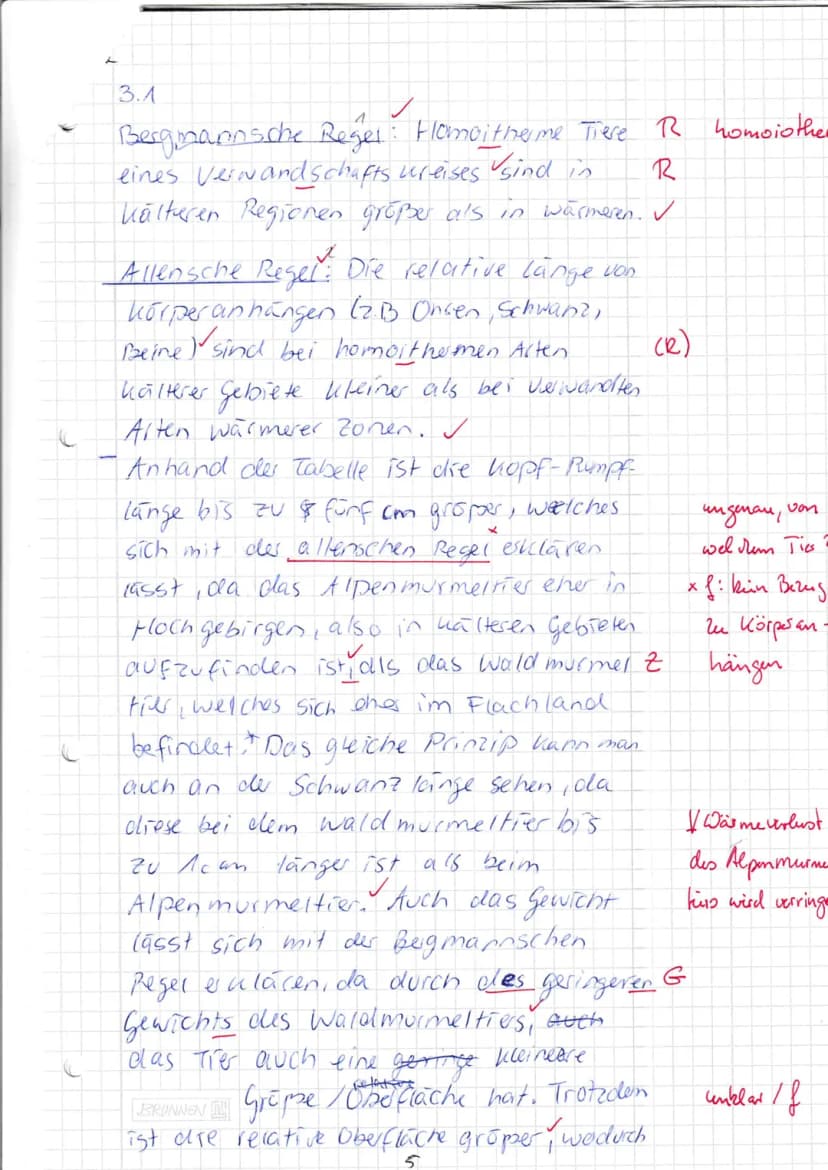 3.1
Bergmannsche Regel: Homoitherme Tiere R homoiothe
eines Verwandschaftskreises sind in R
kälteren Regionen größer als in wärmeren.
Allensche Regel: Die relative Länge von
Körperanhängen (z.B Ohren, Schwanz,
Beine) sind bei homoithermen Arten (R)
kälterer Gebiete kleiner als bei verwandten
Arten wärmerer Zonen.
Anhand der Tabelle ist die Kopf-Rumpf-
länge bis zu fünf cm größer, welches ungenau, von
sich mit der allenschen Regel erklären welchem Tier?
lässt, da das Alpenmurmeltier eher in x f: kein Bezug
Hochgebirgen, also in kälteren Gebieten zu Körperan-
aufzufinden ist, als das Waldmurmel Z hängen
tier, welches sich eher im Flachland
befindet. Das gleiche Prinzip kann man
auch an der Schwanzlänge sehen, da
diese bei dem Waldmurmeltier bis √ Wärmeverlust
zu 1cm länger ist als beim des Alpenmurme
Alpenmurmeltier. Auch das Gewicht tiers wird verringe
lässt sich mit der Bergmannschen
Regel erklären, da durch des geringeren G
Gewichts des Waldmurmeltiers, auch
das Tier auch eine geringe kleinere
BRUNNEN Größe / relative Oberfläche hat. Trotzdem unklar / f
ist die relative Oberfläche größer, wodurch
5